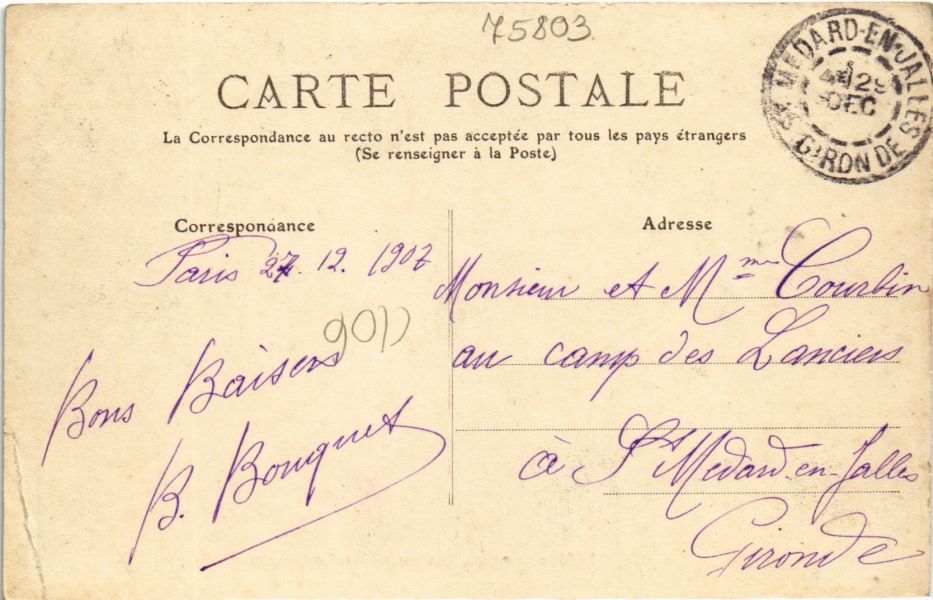 75803
CARTE POSTALE
La Correspondance au recto n'est pas acceptée par tous les pays étrangers
(Se renseigner à la Poste)
ST MEDARD-EN-JALLES
29
DEC
GIRONDE
Correspondance
Paris 27. 12. 1907
Bons Baisers
B. Bouquet
Adresse
Monsieur et Mme Courbin
au camp des Lanciers
à St Medard-en-Jalles
Gironde